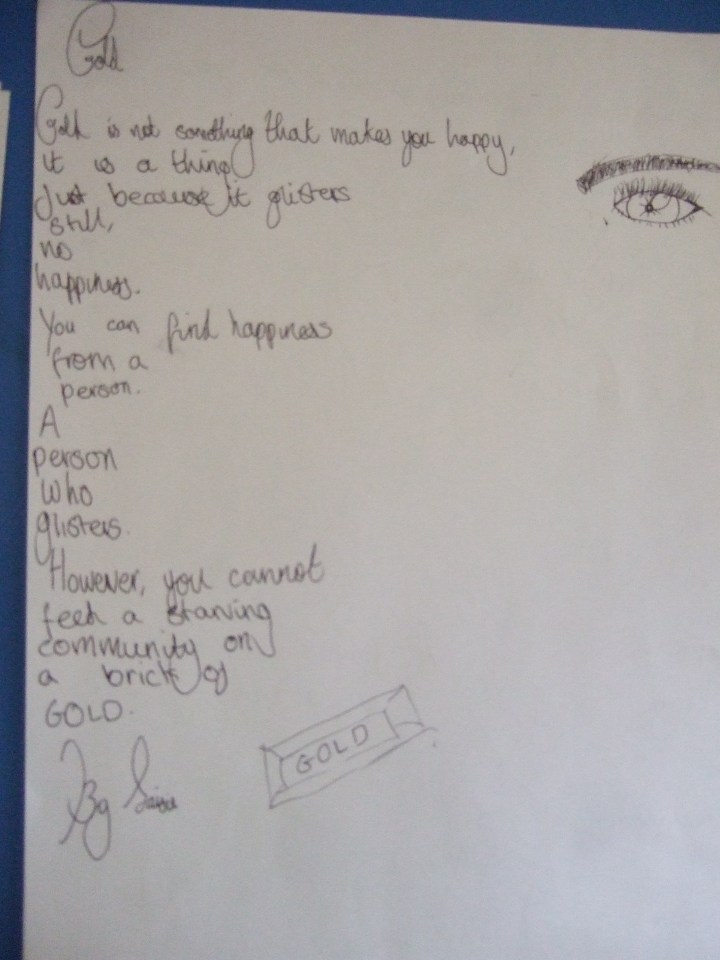 Gold
Gold is not something that makes you happy,
it is a thing
Just because it glisters
still,
no
happiness.
You can find happiness
from a
person.
A
person
who
glisters.
However, you cannot
feed a starving
community on
a brick of
GOLD.
GOLD
By